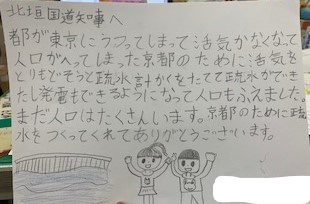 北垣国道知事へ
都が東京にうつってしまって活気がなくなて
人口がへってしまった京都のために活気を
とりもどそうと疏水計かくをたてて疏水ができ
たし発電もできるようになって人口もふえました。
まだ人口はたくさんいます。京都のために疏
水をつくってくれてありがとうございます。